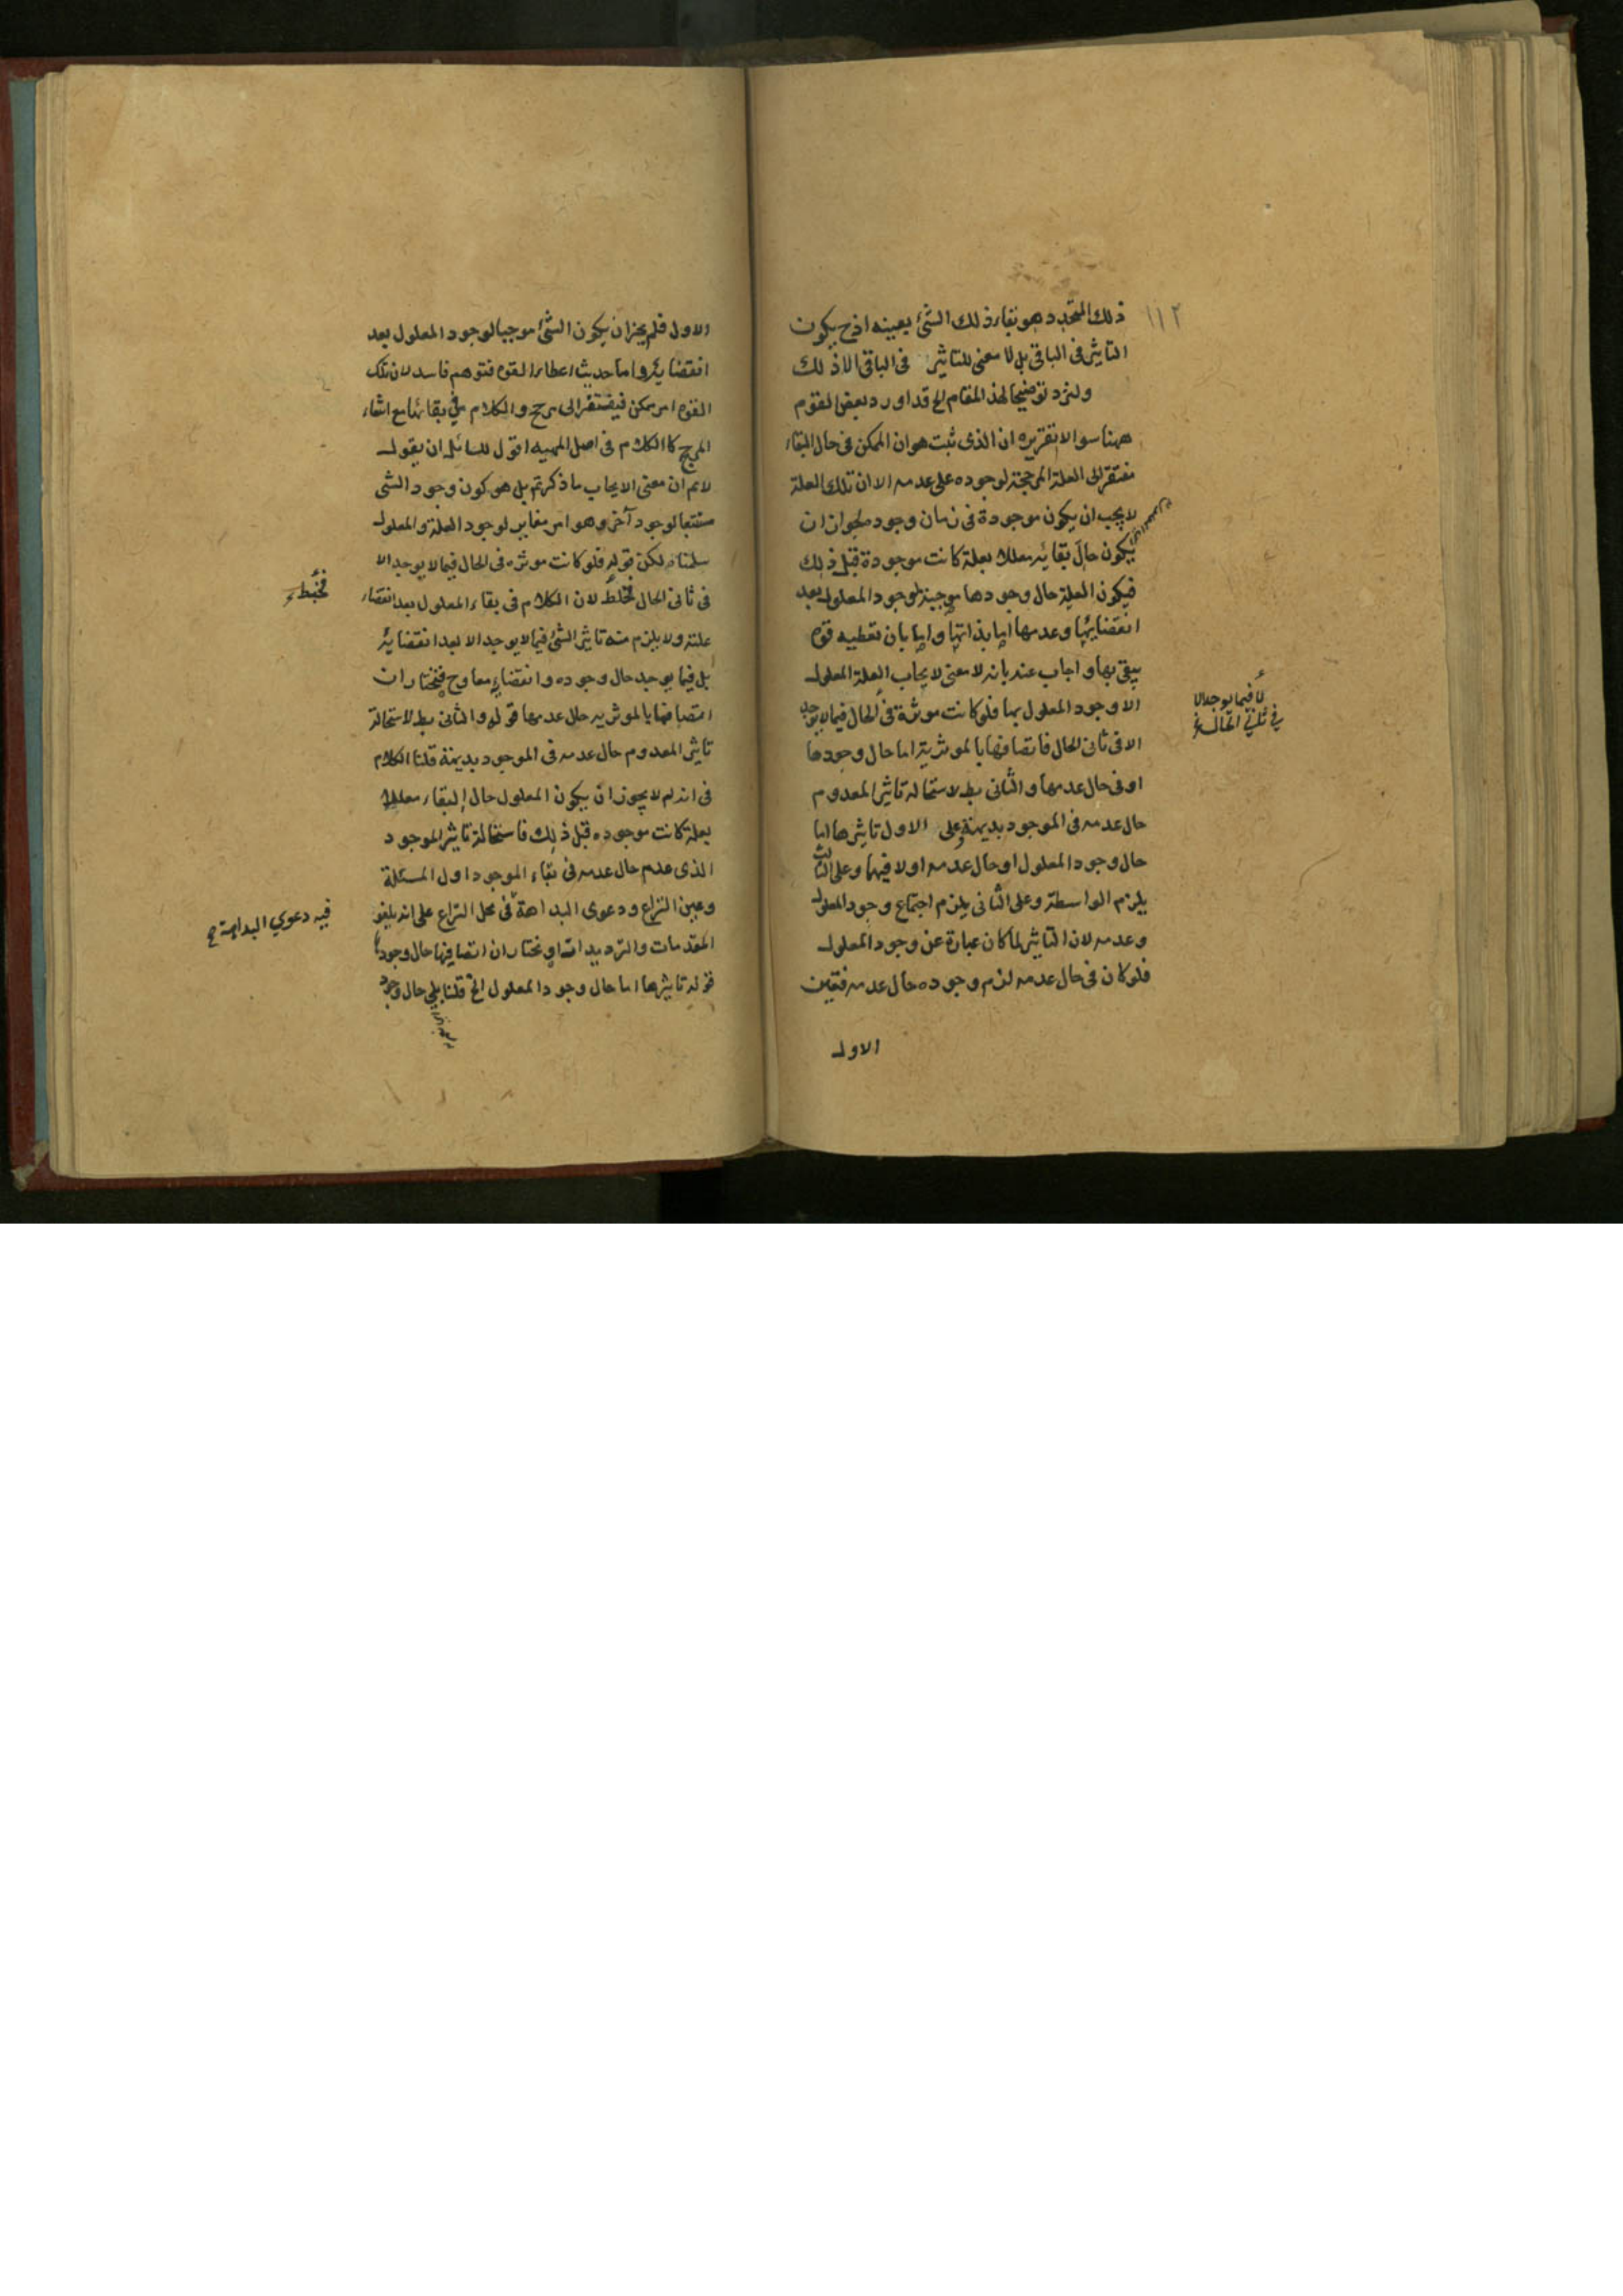 ١١٢
ذلك المتجدد هو بقاء ذلك الشئ بعينه اذ ح يكون
التاثير فى الباقى بل لا معنى للتاثير فى الباقى الا ذلك
ولنزد توضيحا لهذا المقام الح قد اورد بعض القوم
ههنا سوالا تقريره ان الذى ثبت هو ان الممكن فى حال البقاء
مفتقر الى العلة المرجحة لوجوده على عدمه الا ان تلك العلة
لا يجب ان يكون موجودة فى زمان وجوده لجواز ان
يكون حال بقائه معللا بعلة كانت موجودة قبل ذلك
فيكون العلة حال وجودها موجبة لوجود المعلول بعد
انقضائها وعدمها اما بذاتها واما بان تعطيه قوة
يبقى بها واجاب عنه بانه لا معنى لايجاب العلة المعلول
الا وجود المعلول بها فلو كانت موثرة فى الحال فيما لا يوجد
الا فى ثانى الحال فاتصافها بالموثرية اما حال وجودها
او فى حال عدمها والثانى بط لاستحالة تاثير المعدوم
حال عدمه فى الموجود بديهة وعلى الاول تاثيرها اما
حال وجود المعلول او حال عدمه او لا فيهما وعلى الثالث
يلزم الواسطة وعلى الثانى يلزم اجتماع وجود المعلول
وعدمه لان التاثير لما كان عبارة عن وجود المعلول
فلو كان فى حال عدمه لزم وجوده حال عدمه فتعين
الاول
لا فيما يوجد الا
في ثاني الحال
الاول فلم يجز ان يكون الشئ موجبا لوجود المعلول بعد
انقضائه واما حديث اعطاء القوه فتوهم فاسد لان تلك
القوه امر ممكن فيفتقر الى مرجح والكلام في بقائها مع انتفاء
المرجح كالكلام فى اصل المهيه اقول للسائل ان يقول
لانم ان معنى الايجاب ما ذكرتم بل هو كون وجود الشى
مستتبعا لوجود آخر وهو امر مغاير لوجود العلة والمعلول
سلمناه لكن قوله فلو كانت موثره فى الحال فيما لا يوجد الا
فى ثانى الحال تخلط لان الكلام فى بقاء المعلول بعد انقضاء
علته ولا يلزم منه تاثير الشئ فيما لا يوجد الا بعد انقضائه
بل فيما يوجد حال وجوده وانقضائه معا وح فنختار ان
اتصافها بالموثريه حال عدمها قوله والثانى بط لاستحالة
تاثير المعدوم حال عدمه فى الموجود بديهة قلنا الكلام
فى انه لم لا يجوز ان يكون المعلول حال البقاء معللا
بعلة كانت موجوده قبل ذلك فاستحالة تاثير الموجود
الذى عدم حال عدمه فى بقاء الموجود اول المسئلة
وعين النزاع ودعوى البداهة فى محل النزاع على انه يلغو
المقدمات والترديدات او نختار ان اتصافها حال وجودها
قوله تاثيرها اما حال وجود المعلول الخ قلنا بلى حال وجود
فخبط
فيه دعوي البداهة